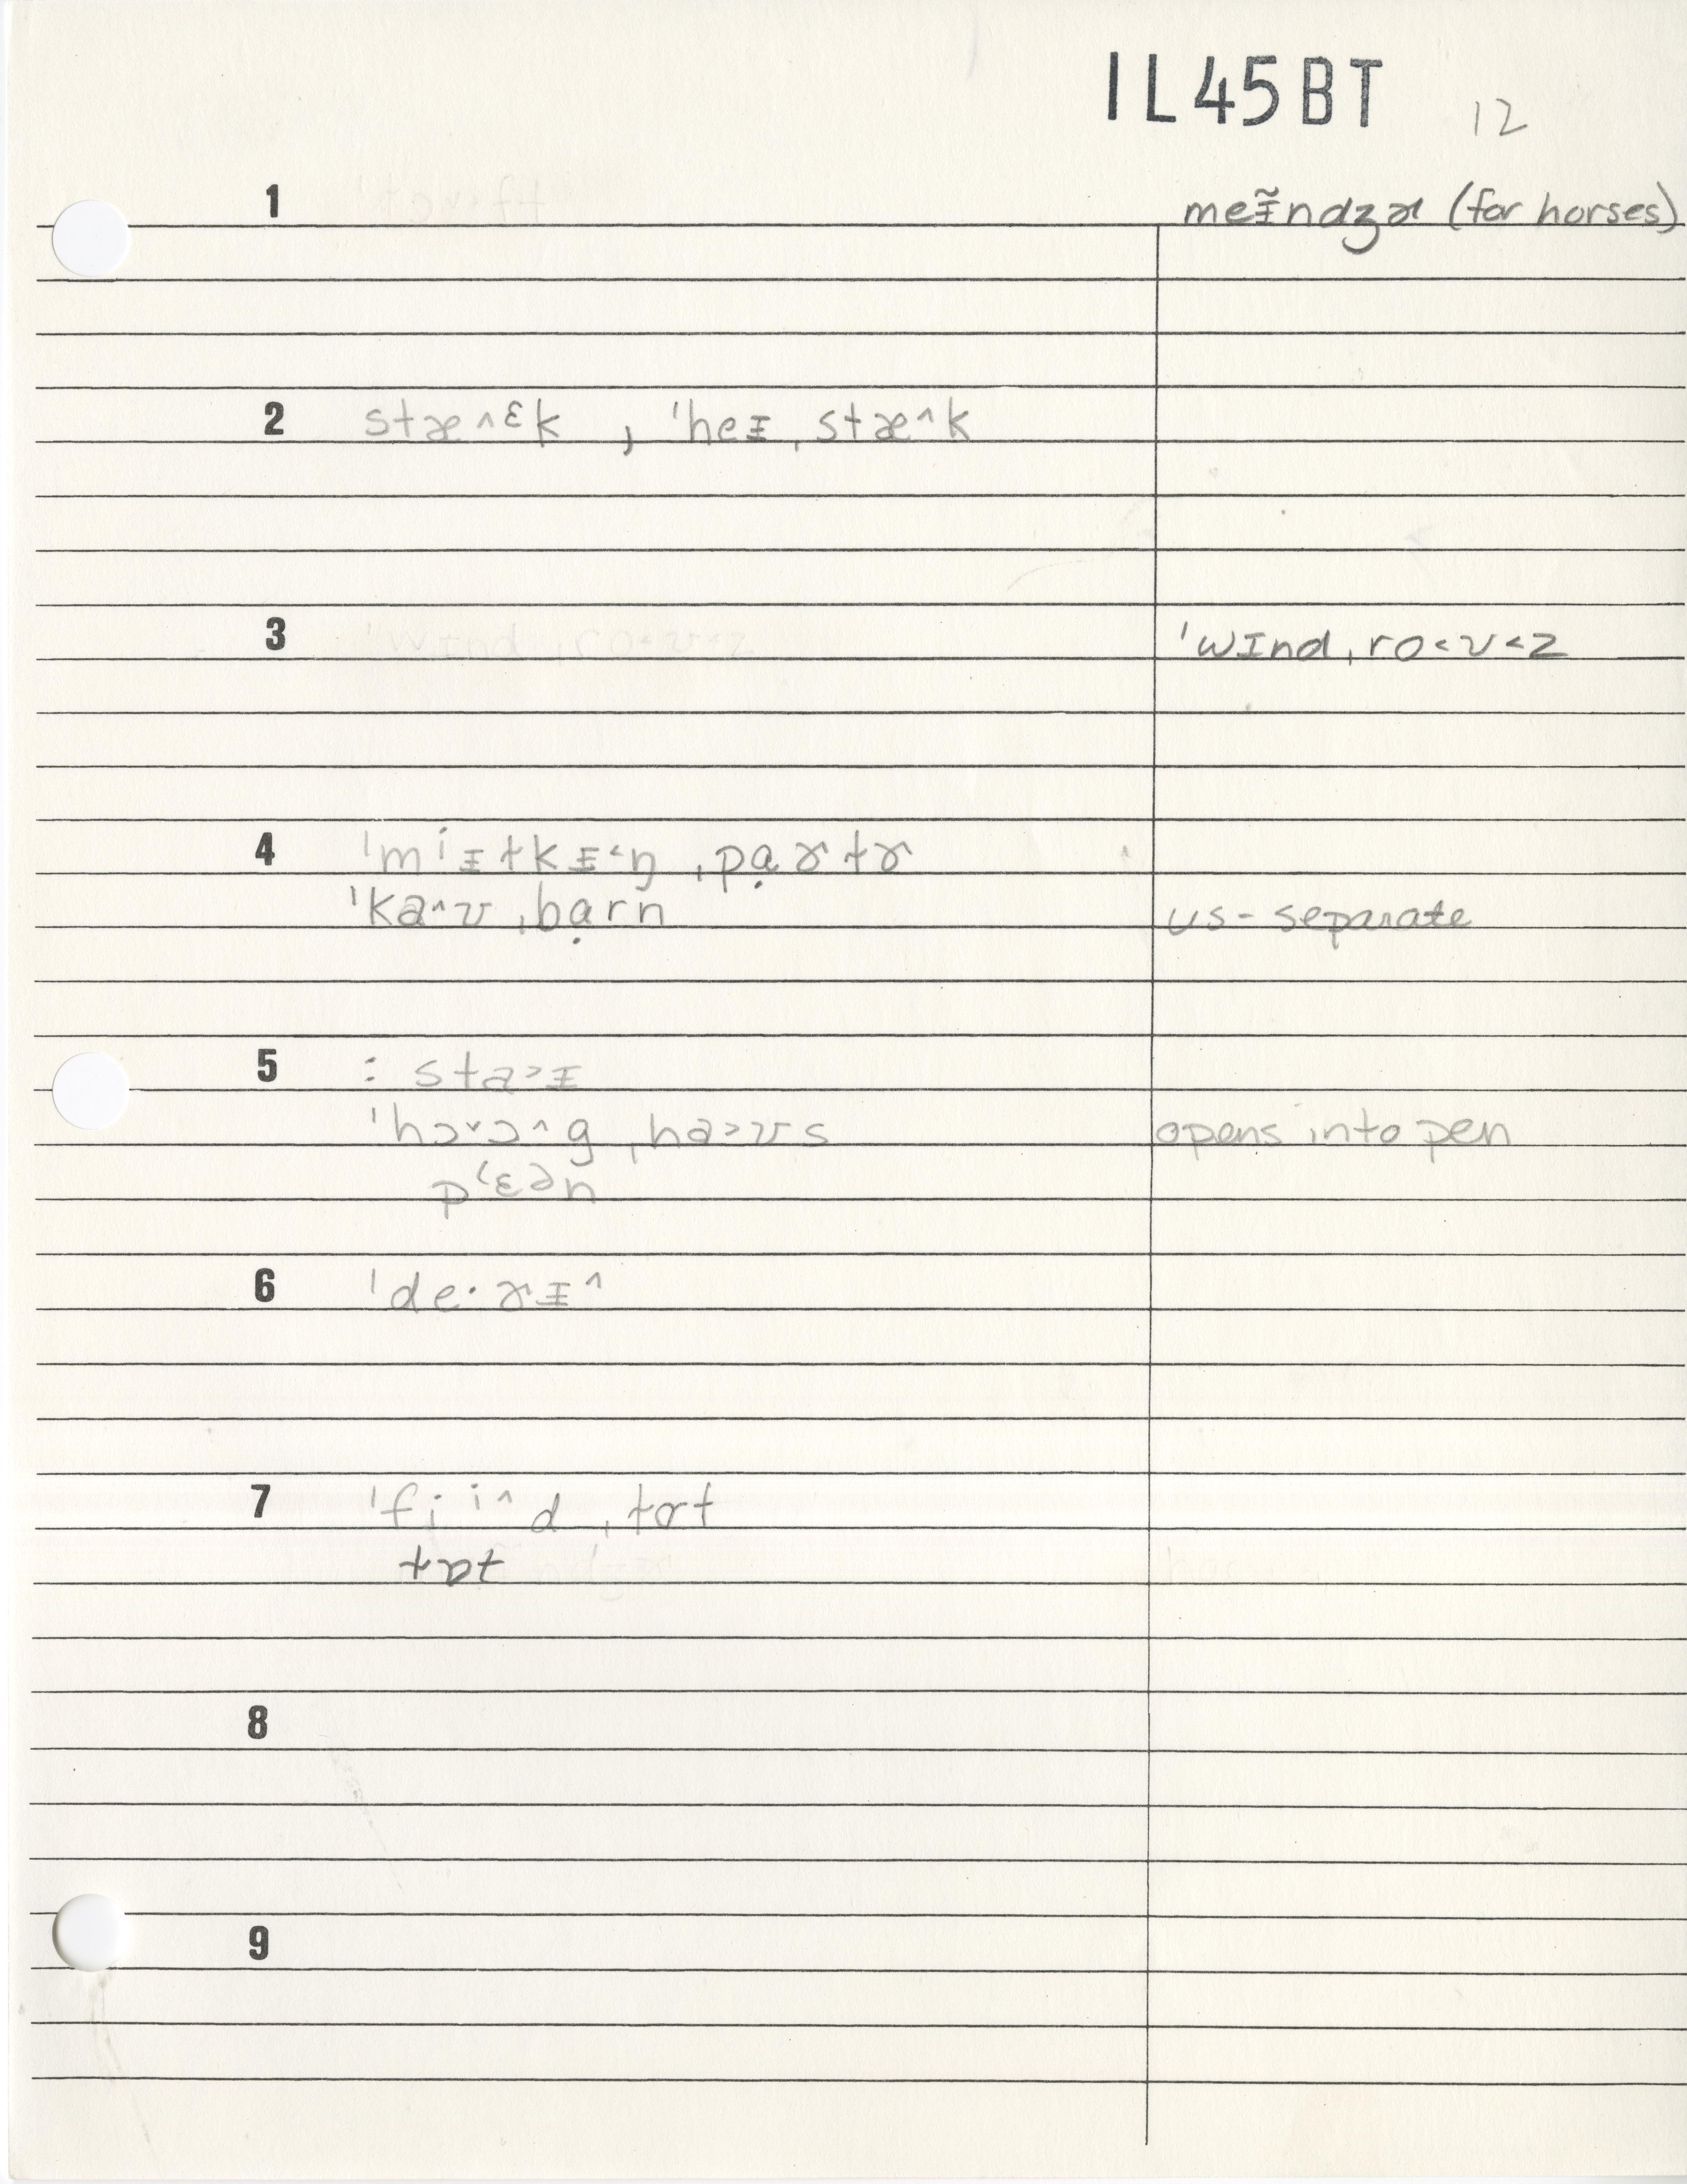 IL45BT 12
1 meɪ̵̃ndʒɚ (for horses)
2 stæ^ɛk , ˈheɪ̵ ˌstæ^k
3 ˈwɪnd ˌro˂ʊ˂z
4 ˈmiɪ̵tkɪ̵˂ŋ ˌpạɚtɚ
ˈka^ʊ ˌbạrn us - separate
5 : sta˃ɪ̵
ˈhɔ˅ɔ^g ˌha˃ʊs opens into pen
pʻɛən
6 ˈde·ɚɪ̵^
7 ˈfi^d ˌlɑt
lɒt
8
9